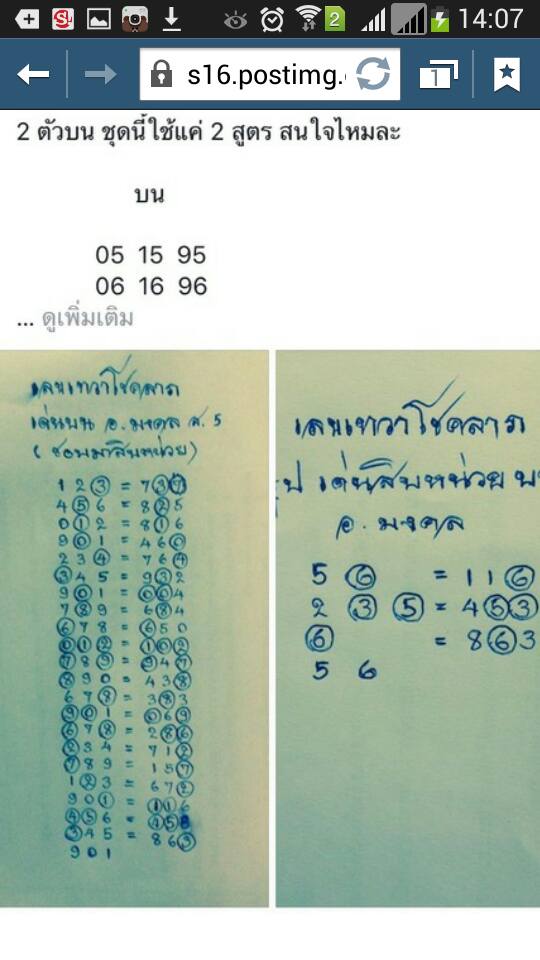 14:07
s16.postimg.
1
2 ตัวบน ชุดนี้ใช้แค่ 2 สูตร สนใจไหมละ
บน
05 15 95
06 16 96
... ดูเพิ่มเติม
เลขเทวาโชคลาภ
เด่นบน อ. มงคล ส. 5
(ชอบมาสิบหน่วย)
1 2 3 = 7 3 7
4 5 6 = 8 2 5
0 1 2 = 8 1 6
9 0 1 = 4 6 0
2 3 4 = 7 6 4
3 4 5 = 9 3 2
9 0 1 = 0 0 4
7 8 9 = 6 8 4
6 7 8 = 6 5 0
0 1 2 = 1 0 2
7 8 9 = 9 4 7
8 9 0 = 4 3 8
6 7 8 = 3 8 3
9 0 1 = 0 6 9
6 7 8 = 2 8 6
2 3 4 = 7 1 2
7 8 9 = 1 5 7
1 2 3 = 6 7 2
9 0 1 = 1 1 6
4 5 6 = 4 5 8
3 4 5 = 8 6 3
9 0 1
เลขเทวาโชคลาภ
รุป เด่นสิบหน่วย บ
อ. มงคล
5 6 = 1 1 6
2 3 5 = 4 5 3
6 = 8 6 3
5 6